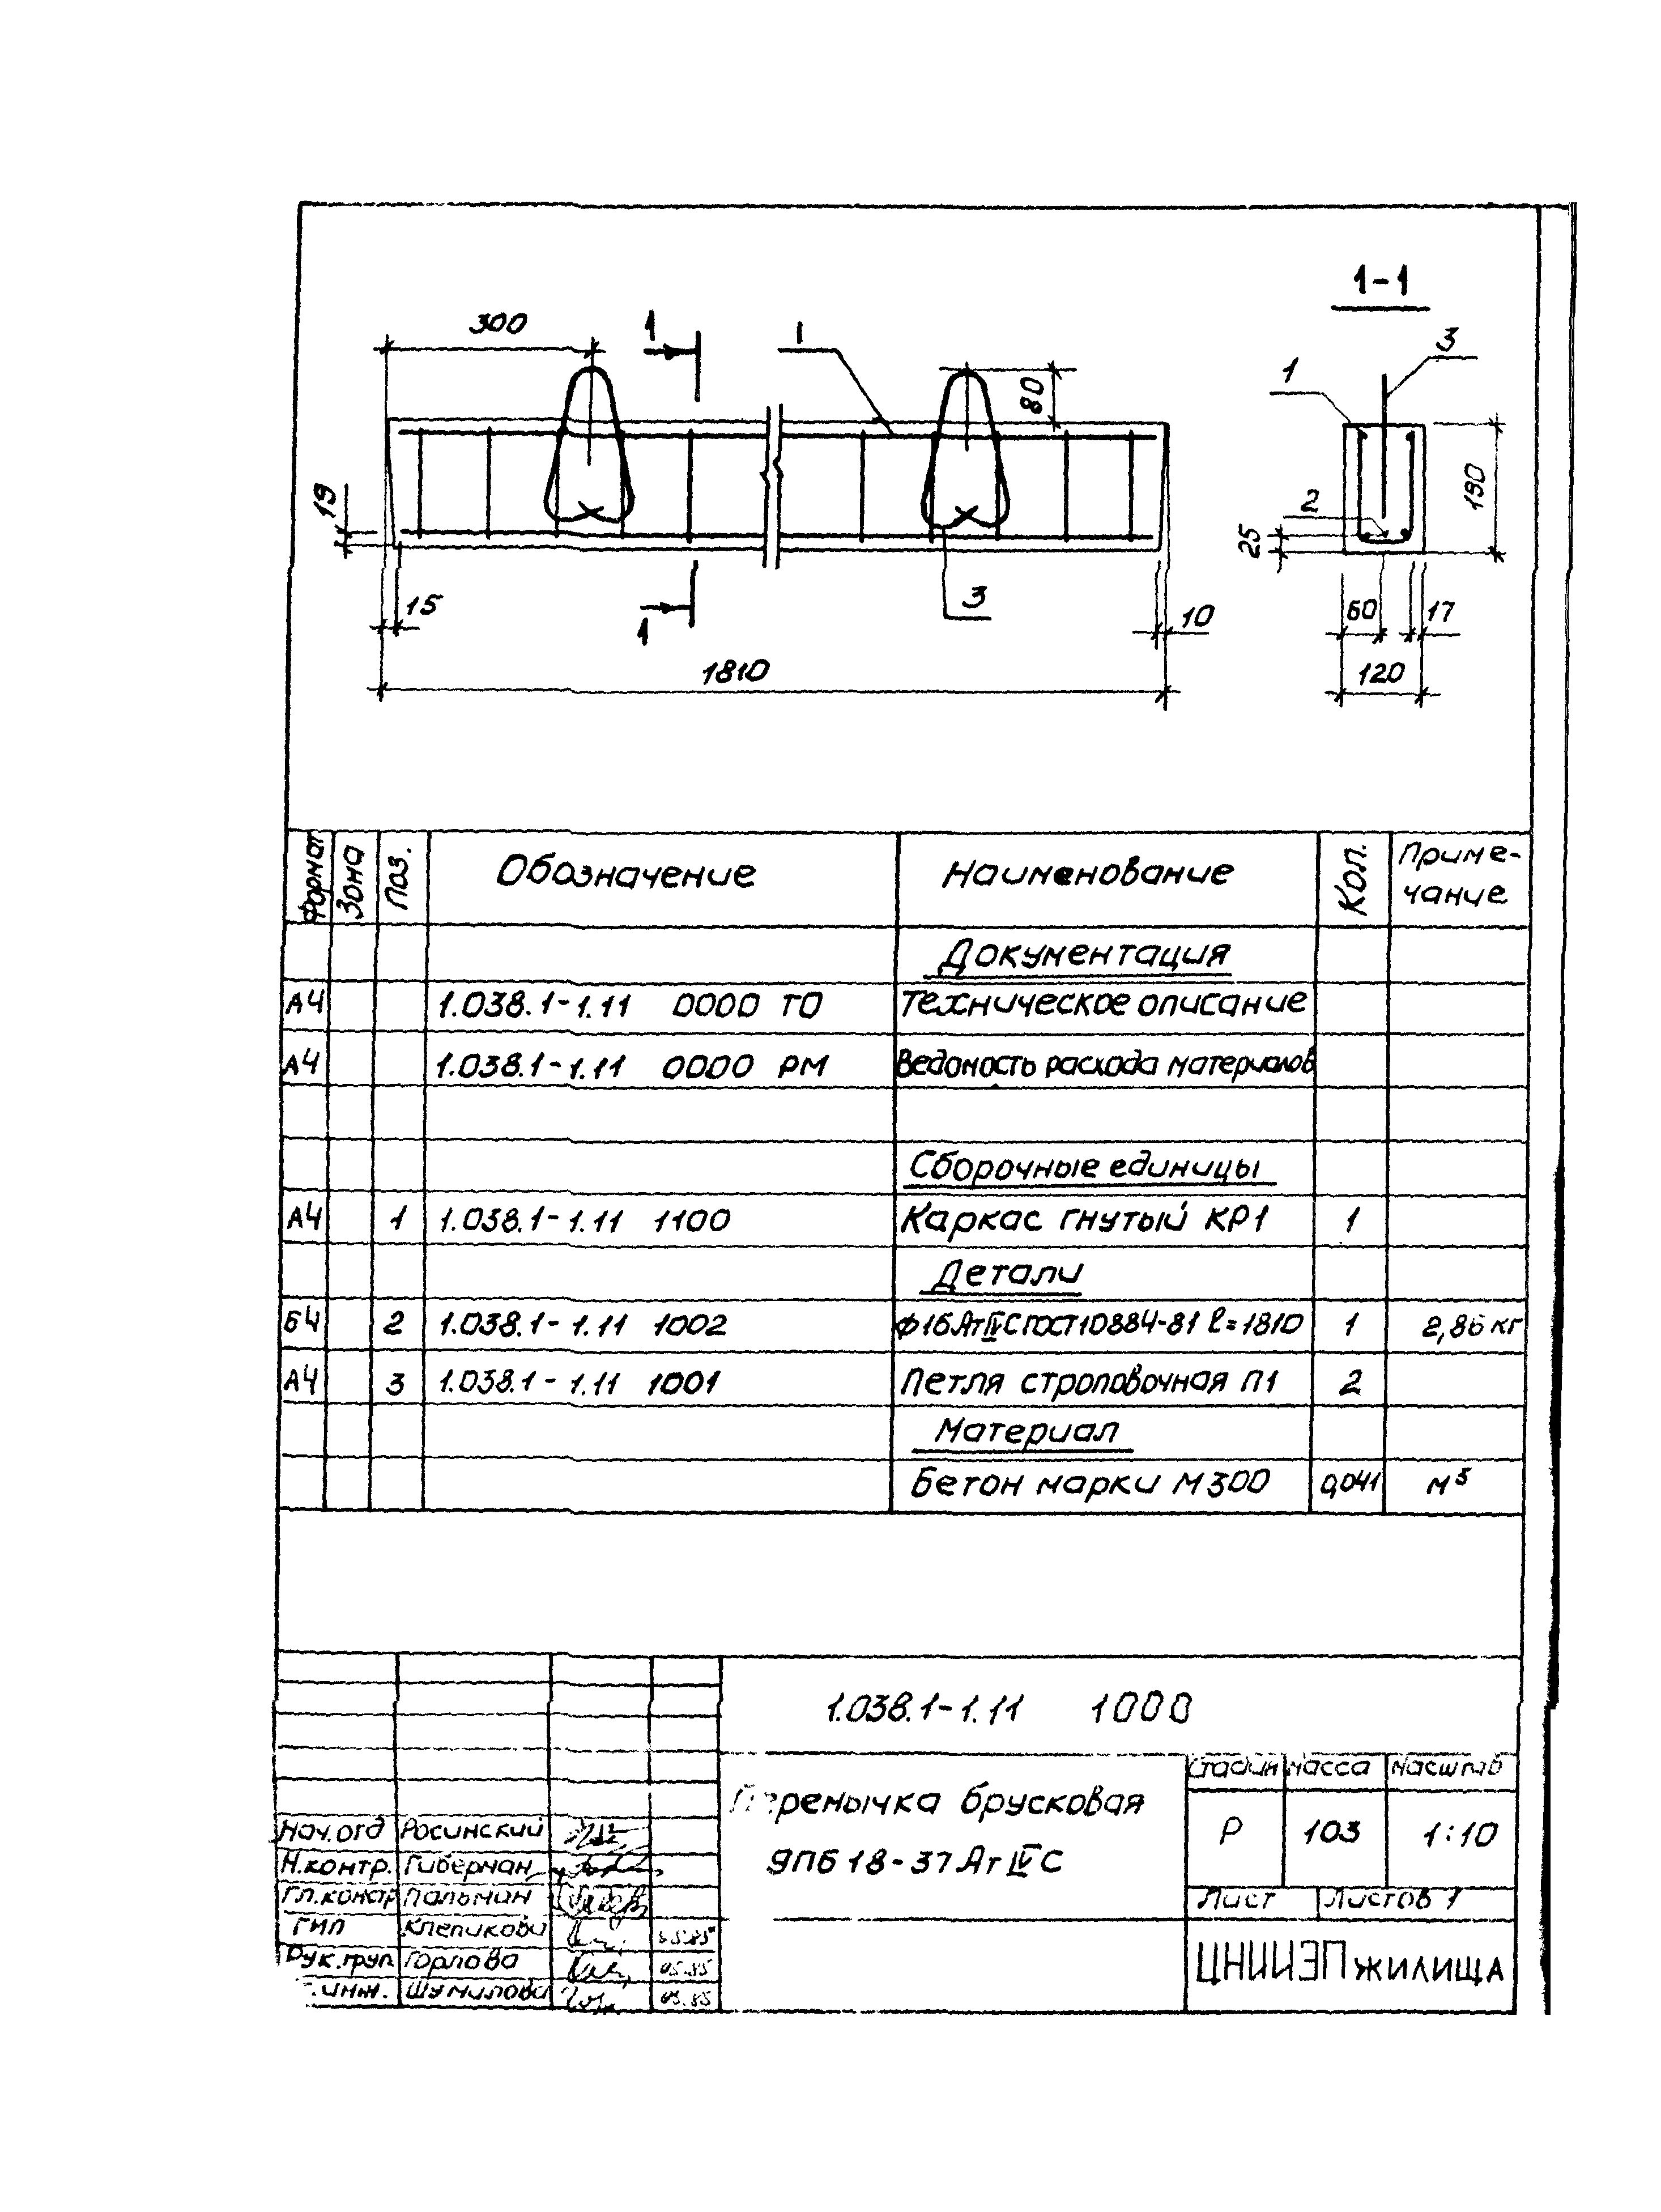 1-1
300
1
1
80
3
1
19
2
190
25
15
1
3
10
60
17
1810
120
Формат Зона Поз. Обозначение Наименование Кол. Приме-
чание
Документация
А4 1.038.1-1.11 0000 ТО Техническое описание
А4 1.038.1-1.11 0000 РМ Ведомость расхода материалов
Сборочные единицы
А4 1 1.038.1-1.11 1100 Каркас гнутый КР1 1
Детали
Б4 2 1.038.1-1.11 1002 Ф16АтIVС ГОСТ10884-81 ℓ=1810 1 2,86 кг
А4 3 1.038.1-1.11 1001 Петля строповочная П1 2
Материал
Бетон марки М300 0,041 м³
1.038.1-1.11 1000
Перемычка брусковая
9ПБ 18-37АтIVС
Стадия Масса Масштаб
Р 103 1:10
Лист Листов 1
ЦНИИЭП жилища
Нач.отд Росинский
Н.контр. Гиберман
Гл.констр Пальман
ГИП Клепикова 05.85
Рук.груп. Горлова 05.85
Шумилова 05.85